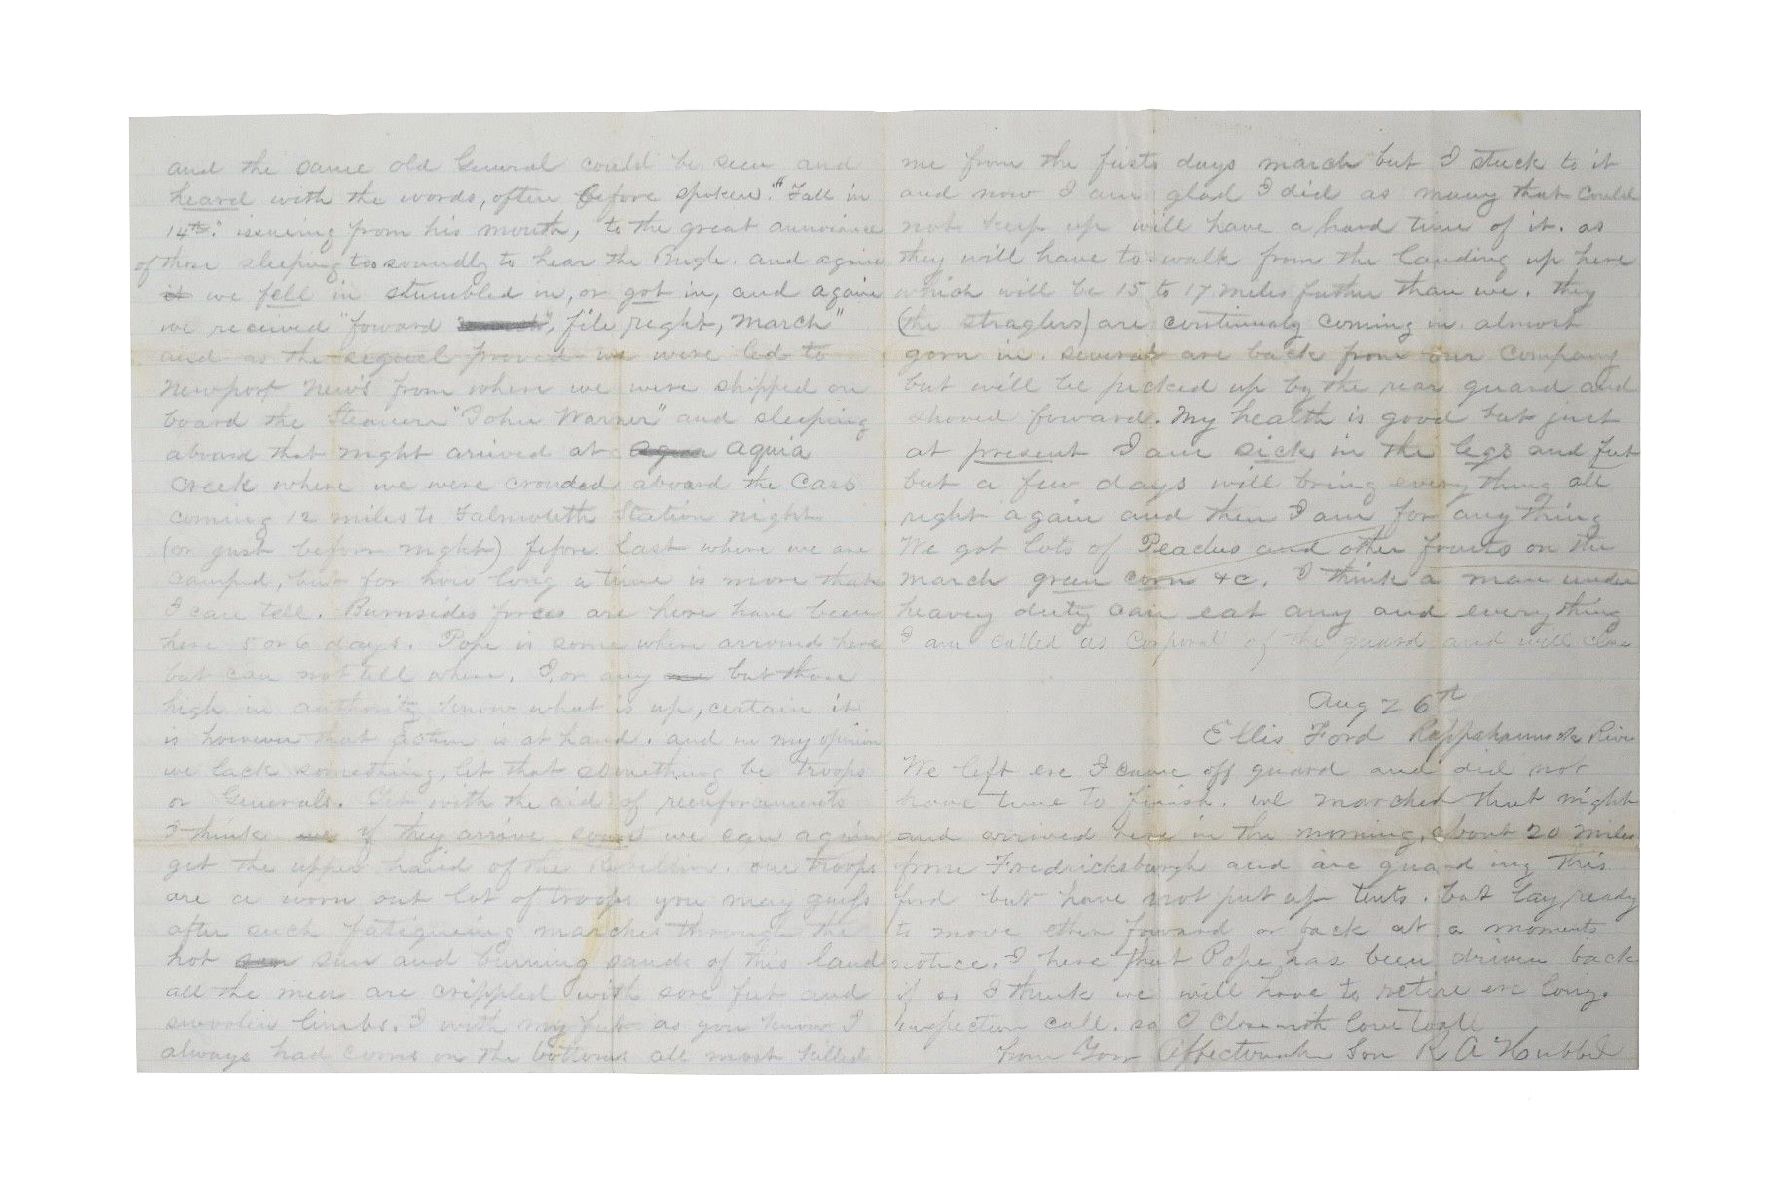 and the same old General could be seen and
heard with the words, often before spoken. "Fall in
14th." issuing from his mouth, to the great annoiance
of those sleeping too soundly to hear the Bugle. and again
it we fell in stumbled in, or got in, and again
we received "foward march", file right, march"
and as the sequel proved we were led to
Newport News from where we were shipped on
board the Steamer "John Warner" and sleeping
aboard that night arrived at Aquia Aquia
Creek where we were crowded aboard the Cars
coming 12 miles to Falmouth Station night
(or just before night) before last where we are
camped, but for how long a time is more than
I can tell. Burnsides forces are here have been
here 5 or 6 days. Pope is some where arround here
but can not tell where. I, or any but those
high in authority know what is up, certain it
is however that action is at hand. and in my opinion
we lack something, let that something be troops
or Generals. Yet with the aid of reenforcements
I think we if they arrive soon we can again
get the upper hand of the Rebellion. our troops
are a worn out lot of troops you may guess
after such fatigueing marches through the
hot sun sun and burning sands of this land
all the men are crippled with sore feet and
swoolen limbs. I with my feet as you know I
always had corns on the bottoms all most killed
me from the firsts days march but I stuck to it
and now I am glad I did as many that could
not keep up will have a hard time of it. as
they will have to walk from the landing up here
which will be 15 to 17 miles futher than we. they
(the straglers) are continualy coming in. almost
gorn in. several are back from our company
but will be picked up by the rear guard and
shoved foward. My health is good but just
at present I am sick in the legs and feet
but a few days will bring everything all
right again and then I am for anything
We got lots of Peaches and other fruits on the
march green corn &c. I think a man under
heavey duty can eat any and everything
I am called as Corporal of the guard and will close
Aug 26th
Ellis Ford Rappahannock River
We left ere I came off guard and did not
have time to finish. we marched that night
and arrived here in the morning, about 20 miles
from Fredricksburgh and are guarding this
ford but have not put up tents. but lay ready
to move either foward or back at a moments
notice. I here that Pope has been driven back
if so I think we will have to retire ere long.
Inspection call. so I close with love to all
from Your Affectionate Son R A Hubbel